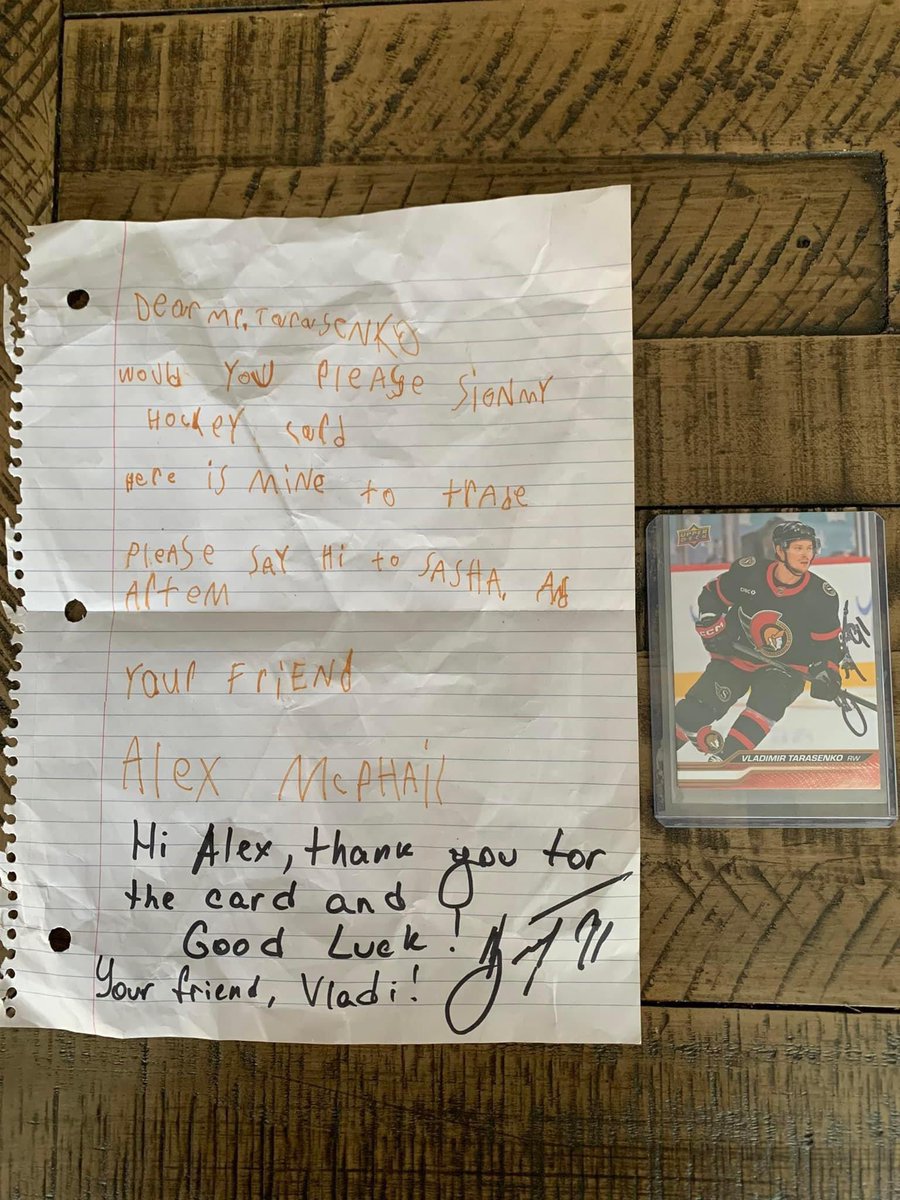 Dear Mr. Tarasenko
would You PleAse SiGN MY
HockeY card
Here is MiNe to trade
PleAse SAY Hi to SASHA,
Artem
Your FriEND
Alex McPHAil
Hi Alex, thank you for
the card and
Good Luck!
Your friend, Vladi!
91
UPPER DECK
CCM
VLADIMIR TARASENKO RW